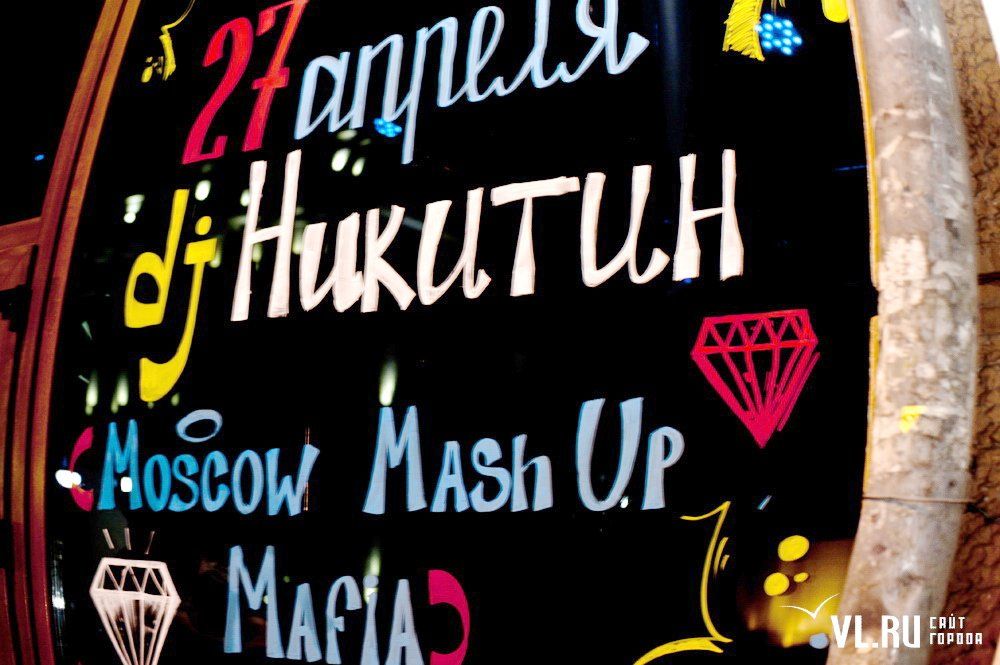 27 апреля
dj Никитин
(Moscow Mash Up
Mafia)
VL.RU САЙТ
ГОРОДА